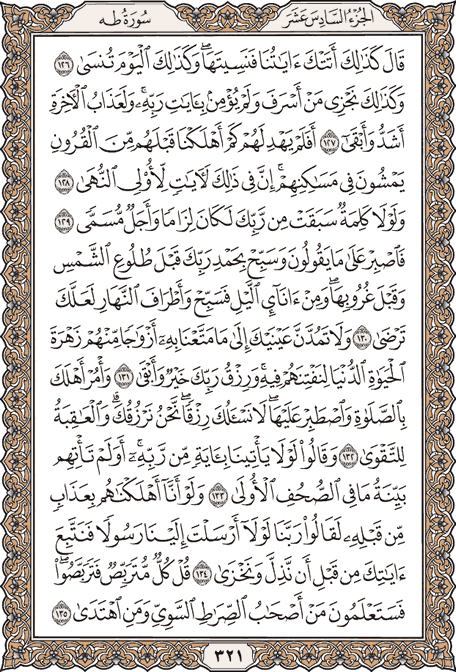 الجزء السادس عشر
سورة طه
قَالَ كَذَٰلِكَ أَتَتۡكَ ءَايَٰتُنَا فَنَسِيتَهَاۖ وَكَذَٰلِكَ ٱلۡيَوۡمَ تُنسَىٰ ١٢٦
وَكَذَٰلِكَ نَجۡزِي مَنۡ أَسۡرَفَ وَلَمۡ يُؤۡمِنۢ بِـَٔايَٰتِ رَبِّهِۦۚ وَلَعَذَابُ ٱلۡأٓخِرَةِ
أَشَدُّ وَأَبۡقَىٰٓ ١٢٧ أَفَلَمۡ يَهۡدِ لَهُمۡ كَمۡ أَهۡلَكۡنَا قَبۡلَهُم مِّنَ ٱلۡقُرُونِ
يَمۡشُونَ فِي مَسَٰكِنِهِمۡۚ إِنَّ فِي ذَٰلِكَ لَأٓيَٰتٖ لِّأُوْلِي ٱلنُّهَىٰ ١٢٨
وَلَوۡلَا كَلِمَةٞ سَبَقَتۡ مِن رَّبِّكَ لَكَانَ لِزَامٗا وَأَجَلٞ مُّسَمّٗى ١٢٩
فَٱصۡبِرۡ عَلَىٰ مَا يَقُولُونَ وَسَبِّحۡ بِحَمۡدِ رَبِّكَ قَبۡلَ طُلُوعِ ٱلشَّمۡسِ
وَقَبۡلَ غُرُوبِهَاۖ وَمِنۡ ءَانَآيِٕ ٱلَّيۡلِ فَسَبِّحۡ وَأَطۡرَافَ ٱلنَّهَارِ لَعَلَّكَ
تَرۡضَىٰ ١٣٠ وَلَا تَمُدَّنَّ عَيۡنَيۡكَ إِلَىٰ مَا مَتَّعۡنَا بِهِۦٓ أَزۡوَٰجٗا مِّنۡهُمۡ زَهۡرَةَ
ٱلۡحَيَوٰةِ ٱلدُّنۡيَا لِنَفۡتِنَهُمۡ فِيهِۚ وَرِزۡقُ رَبِّكَ خَيۡرٞ وَأَبۡقَىٰ ١٣١ وَأۡمُرۡ أَهۡلَكَ
بِٱلصَّلَوٰةِ وَٱصۡطَبِرۡ عَلَيۡهَاۖ لَا نَسۡـَٔلُكَ رِزۡقٗاۖ نَّحۡنُ نَرۡزُقُكَۗ وَٱلۡعَٰقِبَةُ
لِلتَّقۡوَىٰ ١٣٢ وَقَالُواْ لَوۡلَا يَأۡتِينَا بِـَٔايَةٖ مِّن رَّبِّهِۦٓۚ أَوَلَمۡ تَأۡتِهِم
بَيِّنَةُ مَا فِي ٱلصُّحُفِ ٱلۡأُولَىٰ ١٣٣ وَلَوۡ أَنَّآ أَهۡلَكۡنَٰهُم بِعَذَابٖ
مِّن قَبۡلِهِۦ لَقَالُواْ رَبَّنَا لَوۡلَآ أَرۡسَلۡتَ إِلَيۡنَا رَسُولٗا فَنَتَّبِعَ
ءَايَٰتِكَ مِن قَبۡلِ أَن نَّذِلَّ وَنَخۡزَىٰ ١٣٤ قُلۡ كُلّٞ مُّتَرَبِّصٞ فَتَرَبَّصُواْۖ
فَسَتَعۡلَمُونَ مَنۡ أَصۡحَٰبُ ٱلصِّرَٰطِ ٱلسَّوِيِّ وَمَنِ ٱهۡتَدَىٰ ١٣٥
٣٢١